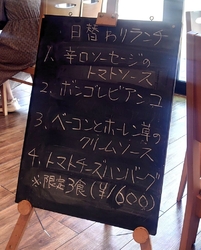 日替わりランチ
1、辛口ソーセージの
トマトソース
2、ボンゴレビアンコ
3、ベーコンとホーレン草の
クリームソース
4、トマトチーズハンバーグ
※限定3食(¥1600)